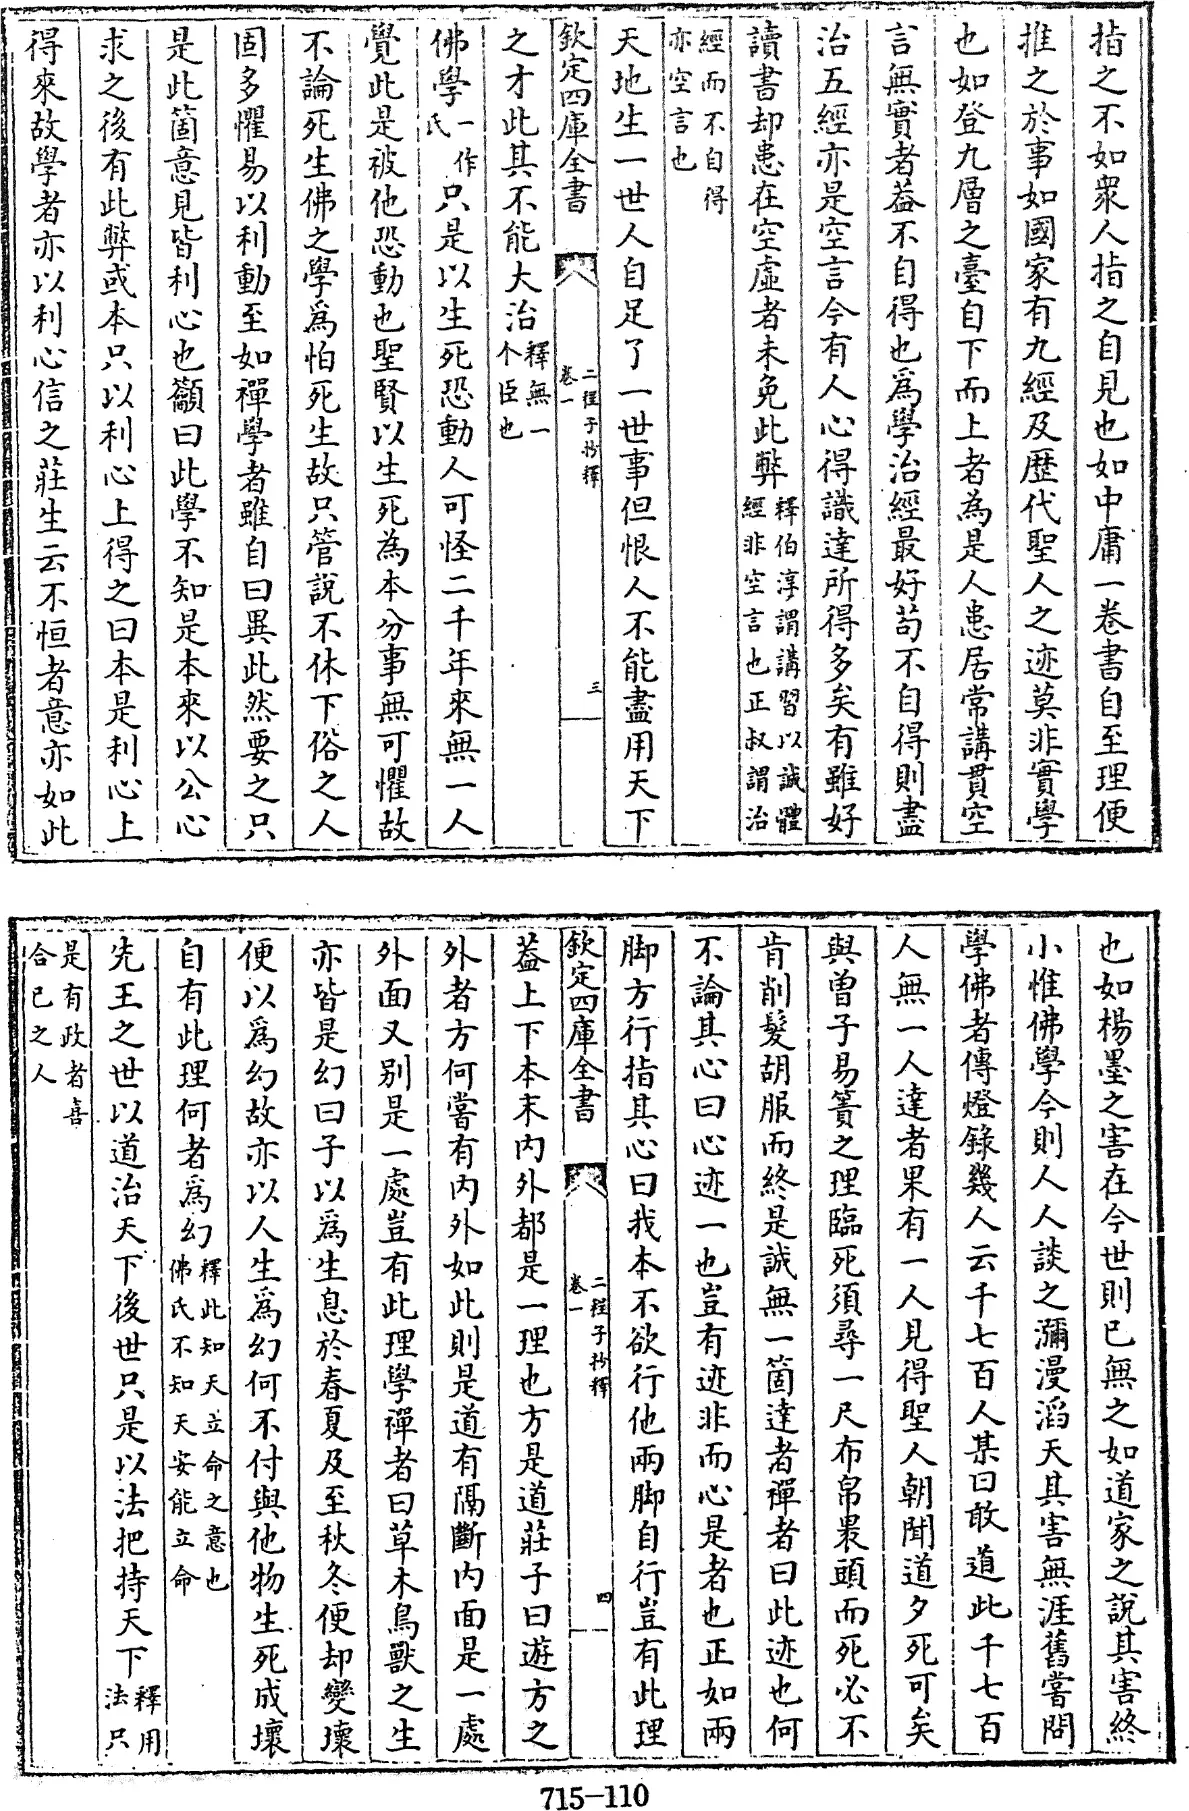 指之不如衆人指之自見也如中庸一卷書自至理便
推之於事如國家有九經及歴代聖人之迹莫非實學
也如登九層之臺自下而上者為是人患居常講貫空
言無實者葢不自得也爲學治經最好茍不自得則盡
治五經亦是空言今有人心得識達所得多矣有雖好
讀書却患在空虛者未免此弊釋伯淳謂講習以誠體
經非空言也正叔謂治
經而不自得
亦空言也
天地生一世人自足了一世事但恨人不能盡用天下
欽定四庫全書
二程子抄釋
卷一
三
之才此其不能大治釋無一
个臣也
佛學一作
氏只是以生死恐動人可怪二千年來無一人
覺此是被他恐動也聖賢以生死為本分事無可懼故
不論死生佛之學爲怕死生故只管說不休下俗之人
固多懼易以利動至如禪學者雖自曰異此然要之只
是此箇意見皆利心也籲曰此學不知是本來以公心
求之後有此弊或本只以利心上得之曰本是利心上
得來故學者亦以利心信之莊生云不恒者意亦如此
也如楊墨之害在今世則已無之如道家之說其害終
小惟佛學今則人人談之瀰漫滔天其害無涯舊嘗問
學佛者傳燈錄幾人云千七百人某曰敢道此千七百
人無一人達者果有一人見得聖人朝聞道夕死可矣
與曾子易簀之理臨死須尋一尺布帛裹頭而死必不
肯削髮胡服而終是誠無一箇達者禪者曰此迹也何
不論其心曰心迹一也豈有迹非而心是者也正如兩
脚方行指其心曰我本不欲行他兩脚自行豈有此理
欽定四庫全書
二程子抄釋
卷一
四
葢上下本末内外都是一理也方是道莊子曰遊方之
外者方何嘗有内外如此則是道有隔斷内面是一處
外面又别是一處豈有此理學禪者曰草木鳥獸之生
亦皆是幻曰子以爲生息於春夏及至秋冬便却變壞
便以爲幻故亦以人生爲幻何不付與他物生死成壞
自有此理何者爲幻釋此知天立命之意也
佛氏不知天安能立命
先王之世以道治天下後世只是以法把持天下釋用
法只
是有政者喜
合已之人
715-110